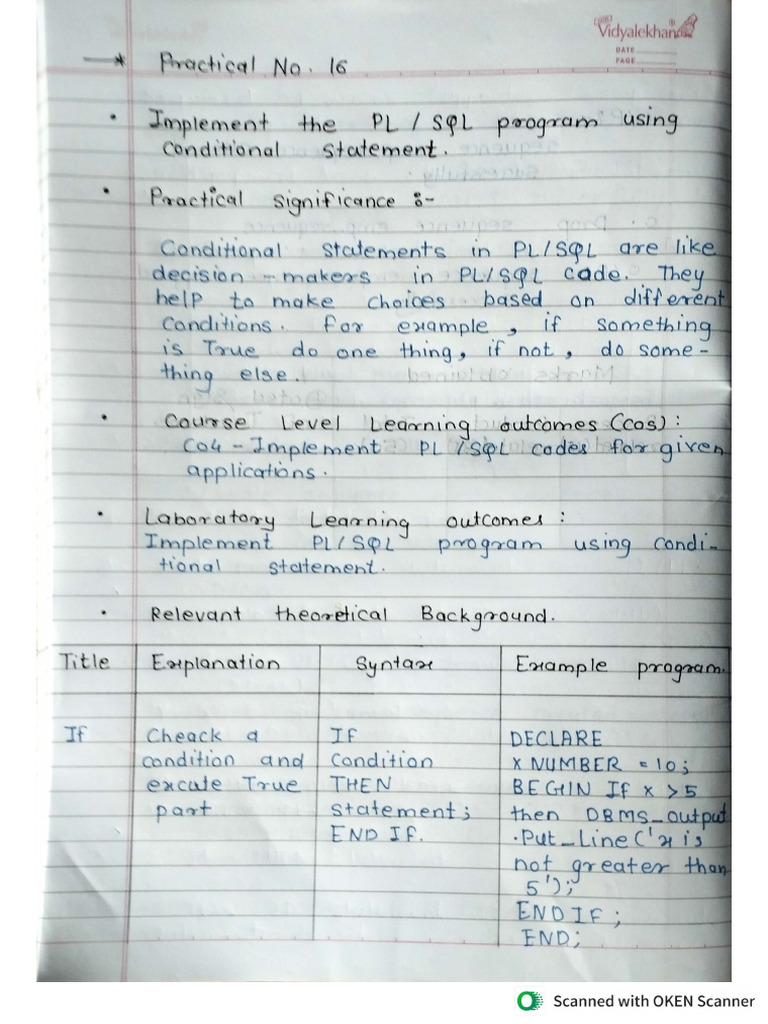 Vidyalekhan
DATE
PAGE
→* Practical No. 16
• Implement the PL / SQL program using
Conditional statement.
• Practical significance :-
Conditional statements in PL/SQL are like
decision - makers in PL/SQL code. They
help to make choices based on different
Conditions. For example, if something
is True do one thing, if not, do some-
thing else.
• Course Level Learning outcomes (cos) :
CO4 - Implement PL / SQL codes for given
applications.
• Laboratory Learning outcomes :
Implement PL/SQL program using condi-
tional statement.
• Relevant theoretical Background.
Title Explanation Syntax Example program.
If Cheack a IF DECLARE
condition and Condition X NUMBER = 10;
excute True THEN BEGIN If x > 5
part statement; then DBMS_output
END IF. .Put_Line ('x is
not greater than
5');
END IF ;
END;
Scanned with OKEN Scanner